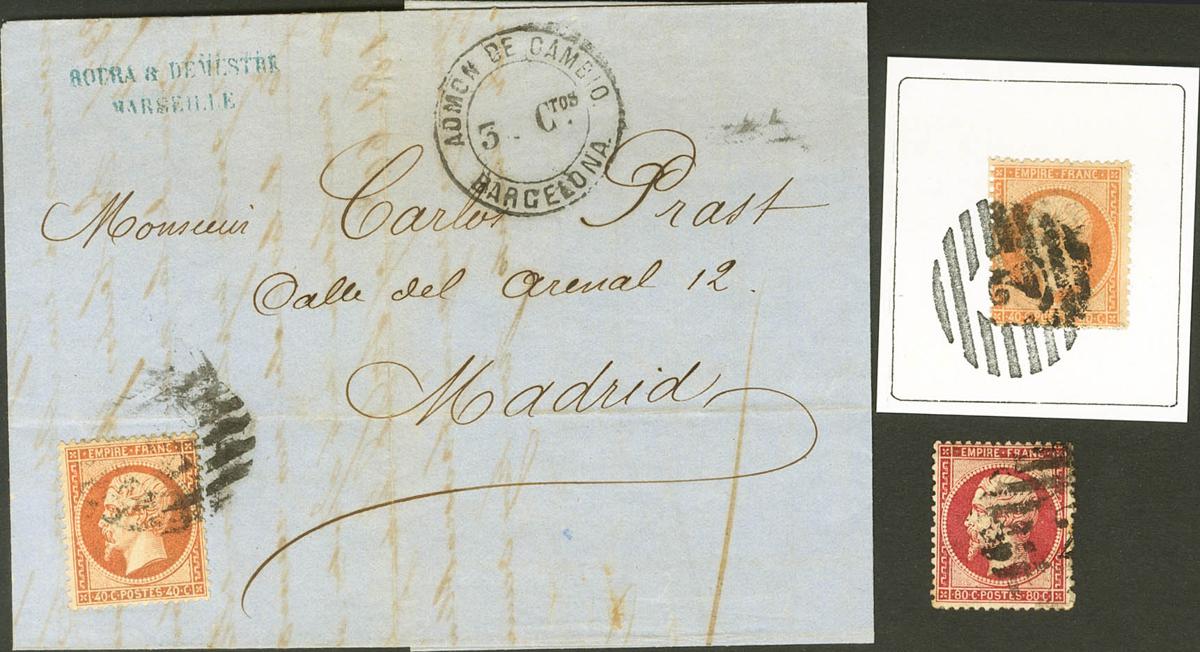 ROURA & DEMESTRE
MARSEILLE
ADMON DE CAMBIO.
3 Ctos
BARCELONA.
Monsieur Carlos Prast
Calle del Arenal 12.
Madrid
EMPIRE FRANC
40·C·POSTES·40·C
EMPIRE FRANC
40
EMPIRE FRANC
80·C·POSTES·80·C